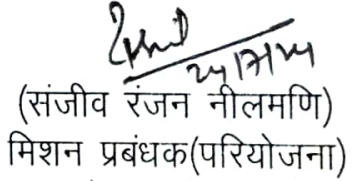 (संजीव रंजन नीलमणि)
मिशन प्रबंधक(परियोजना)